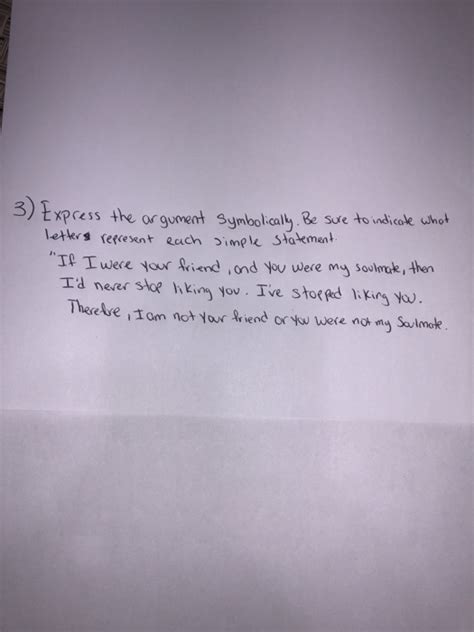 3) Express the argument Symbolically. Be sure to indicate what
letters represent each simple statement.
"If I were your friend, and you were my soulmate, then
I'd never stop liking you. I've stopped liking you.
Therefore, I am not your friend or you were not my Soulmate.